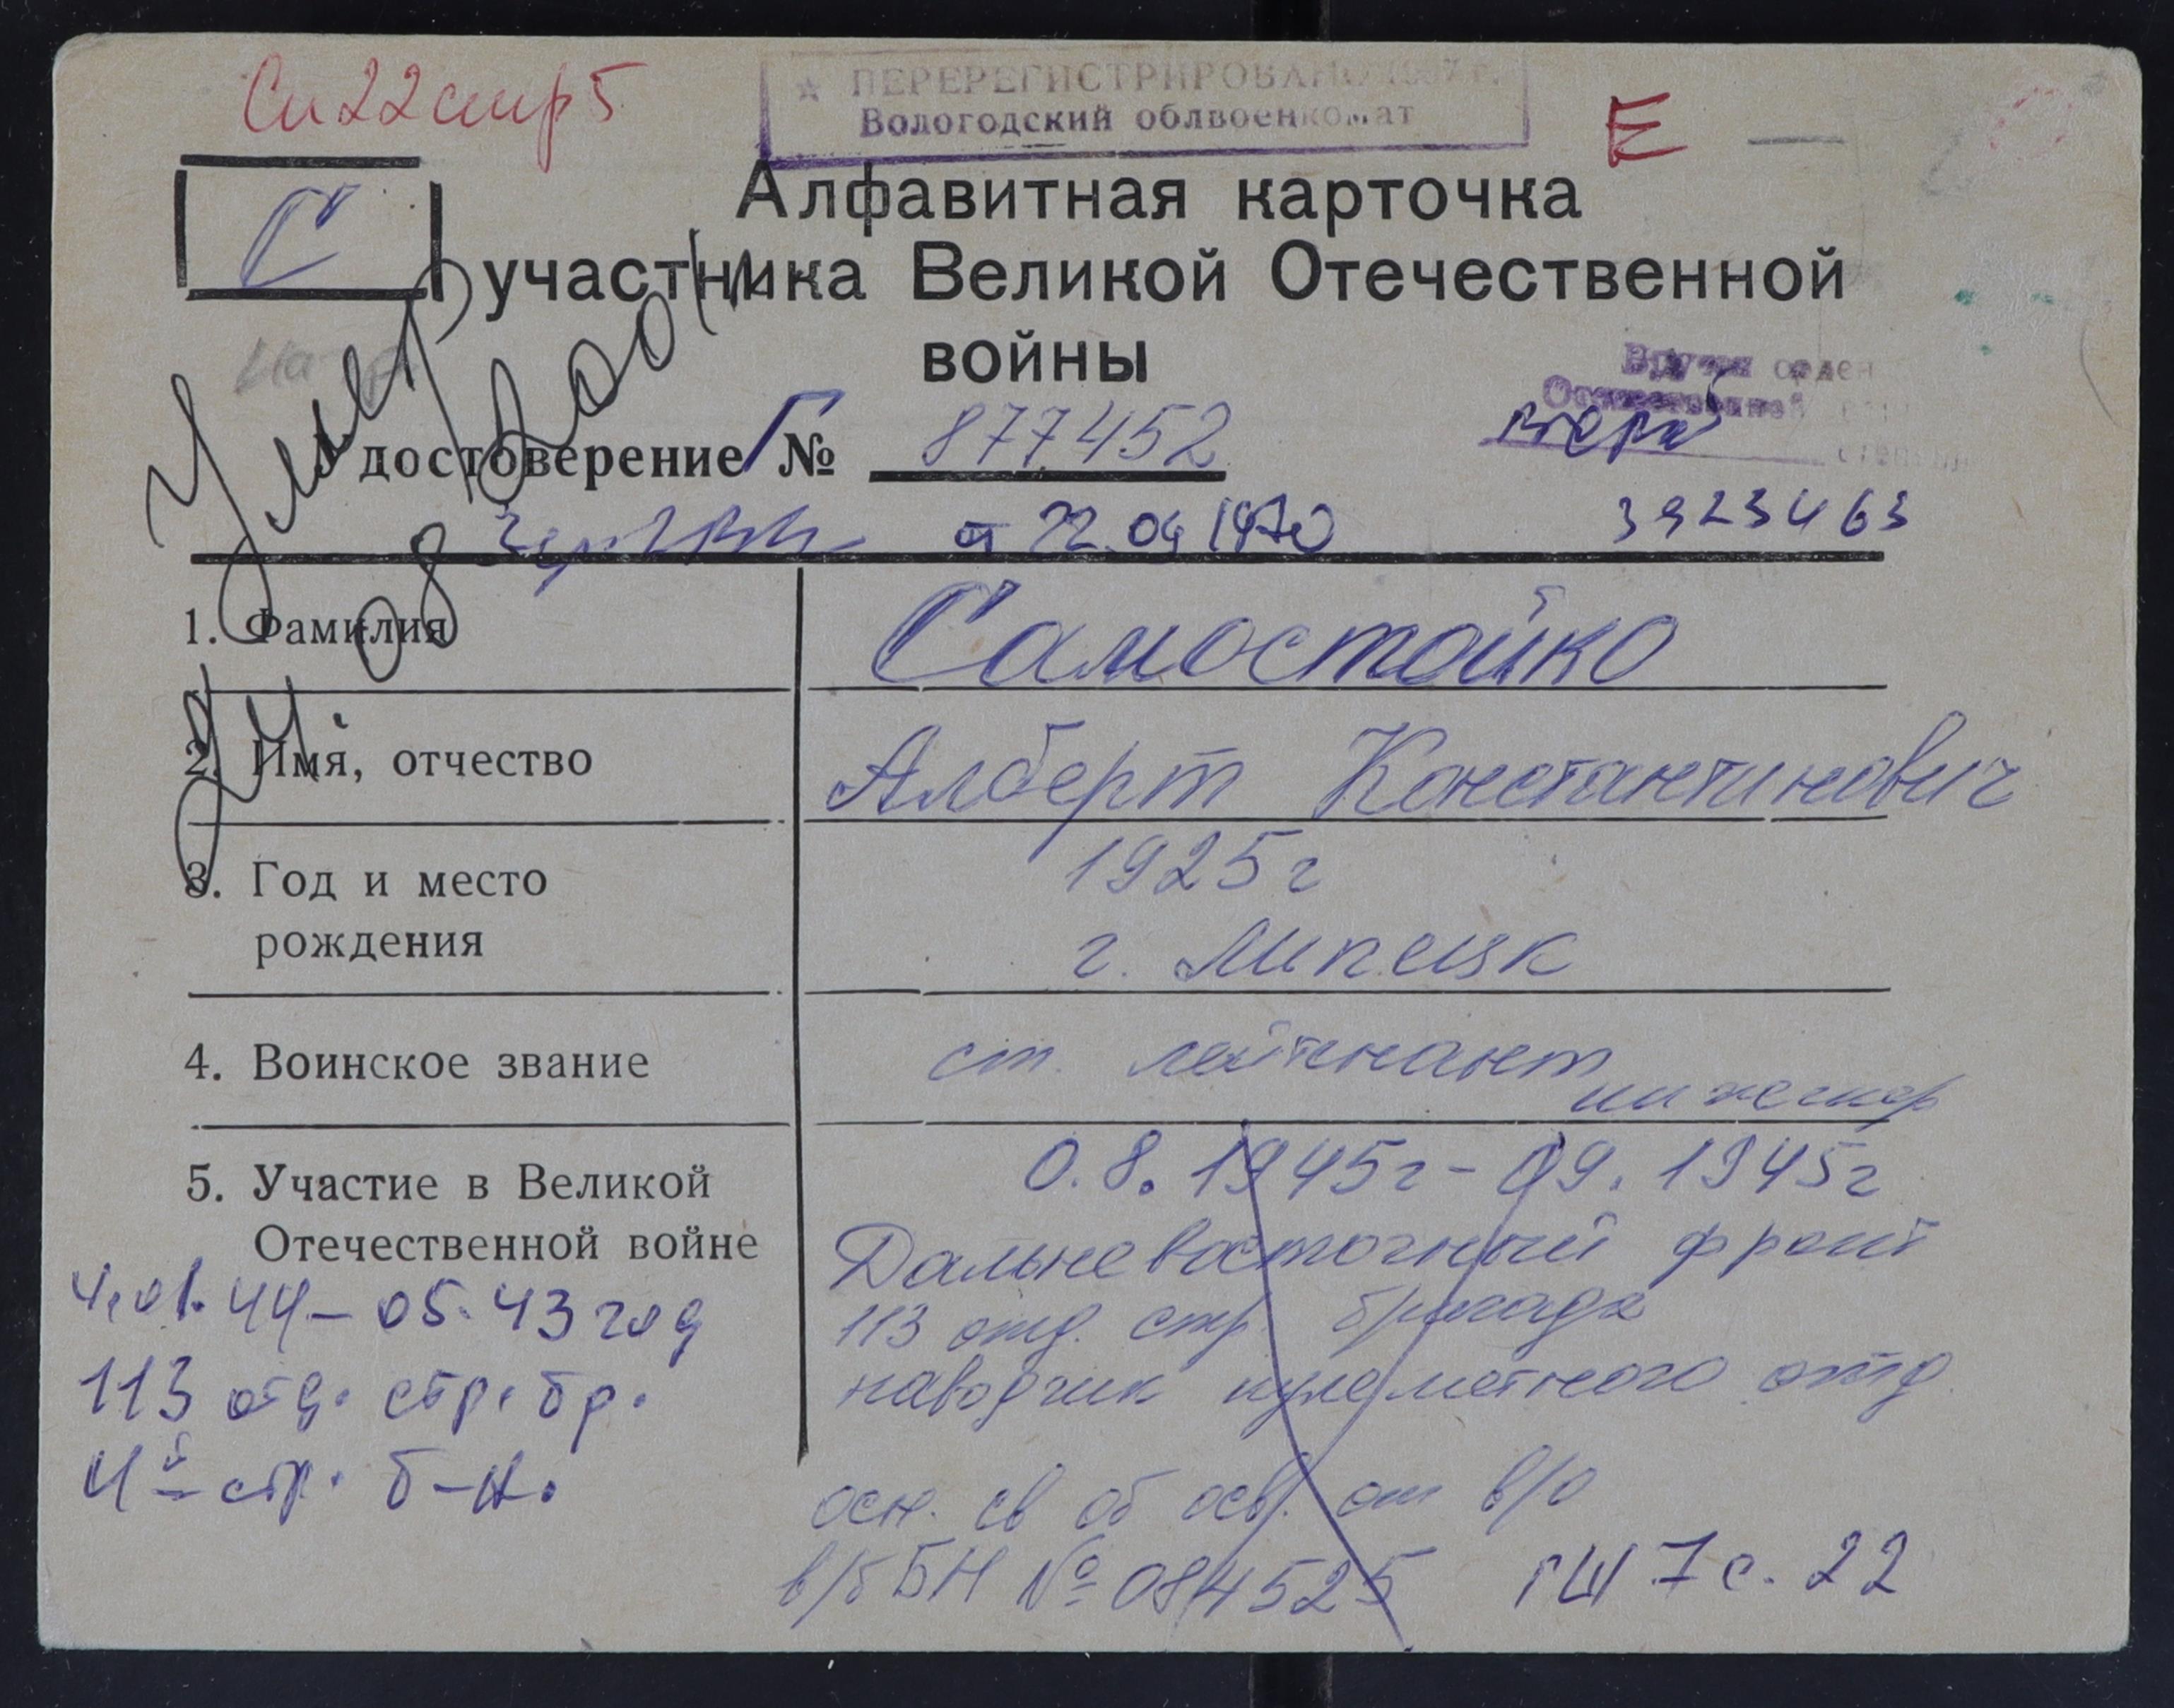 Сп 22 стр 5
ПЕРЕРЕГИСТРИРОВАНО
Вологодский облвоенкомат
Е
С
Алфавитная карточка
участника Великой Отечественной
войны
Вручен орден
Отечественной
второй
степени
Удостоверение Г № 877452
от 22.04 1970
3923463
Умер
24.08 2001
1. Фамилия
Самостойко
2. Имя, отчество
Алберт Константинович
3. Год и место
рождения
1925г
г. Липецк
4. Воинское звание
ст. лейтенант
инженер
5. Участие в Великой
Отечественной войне
0.8.1945г - 09.1945г
Дальневосточный фронт
113 отд. стр. бригада
наводчик пулеметного отд
44 – 05.43 год
113 отд. стр. бр.
4й стр. б-н.
осн. св об осв. от в/о
в/б БН № 084525
ГШ 7 с. 22